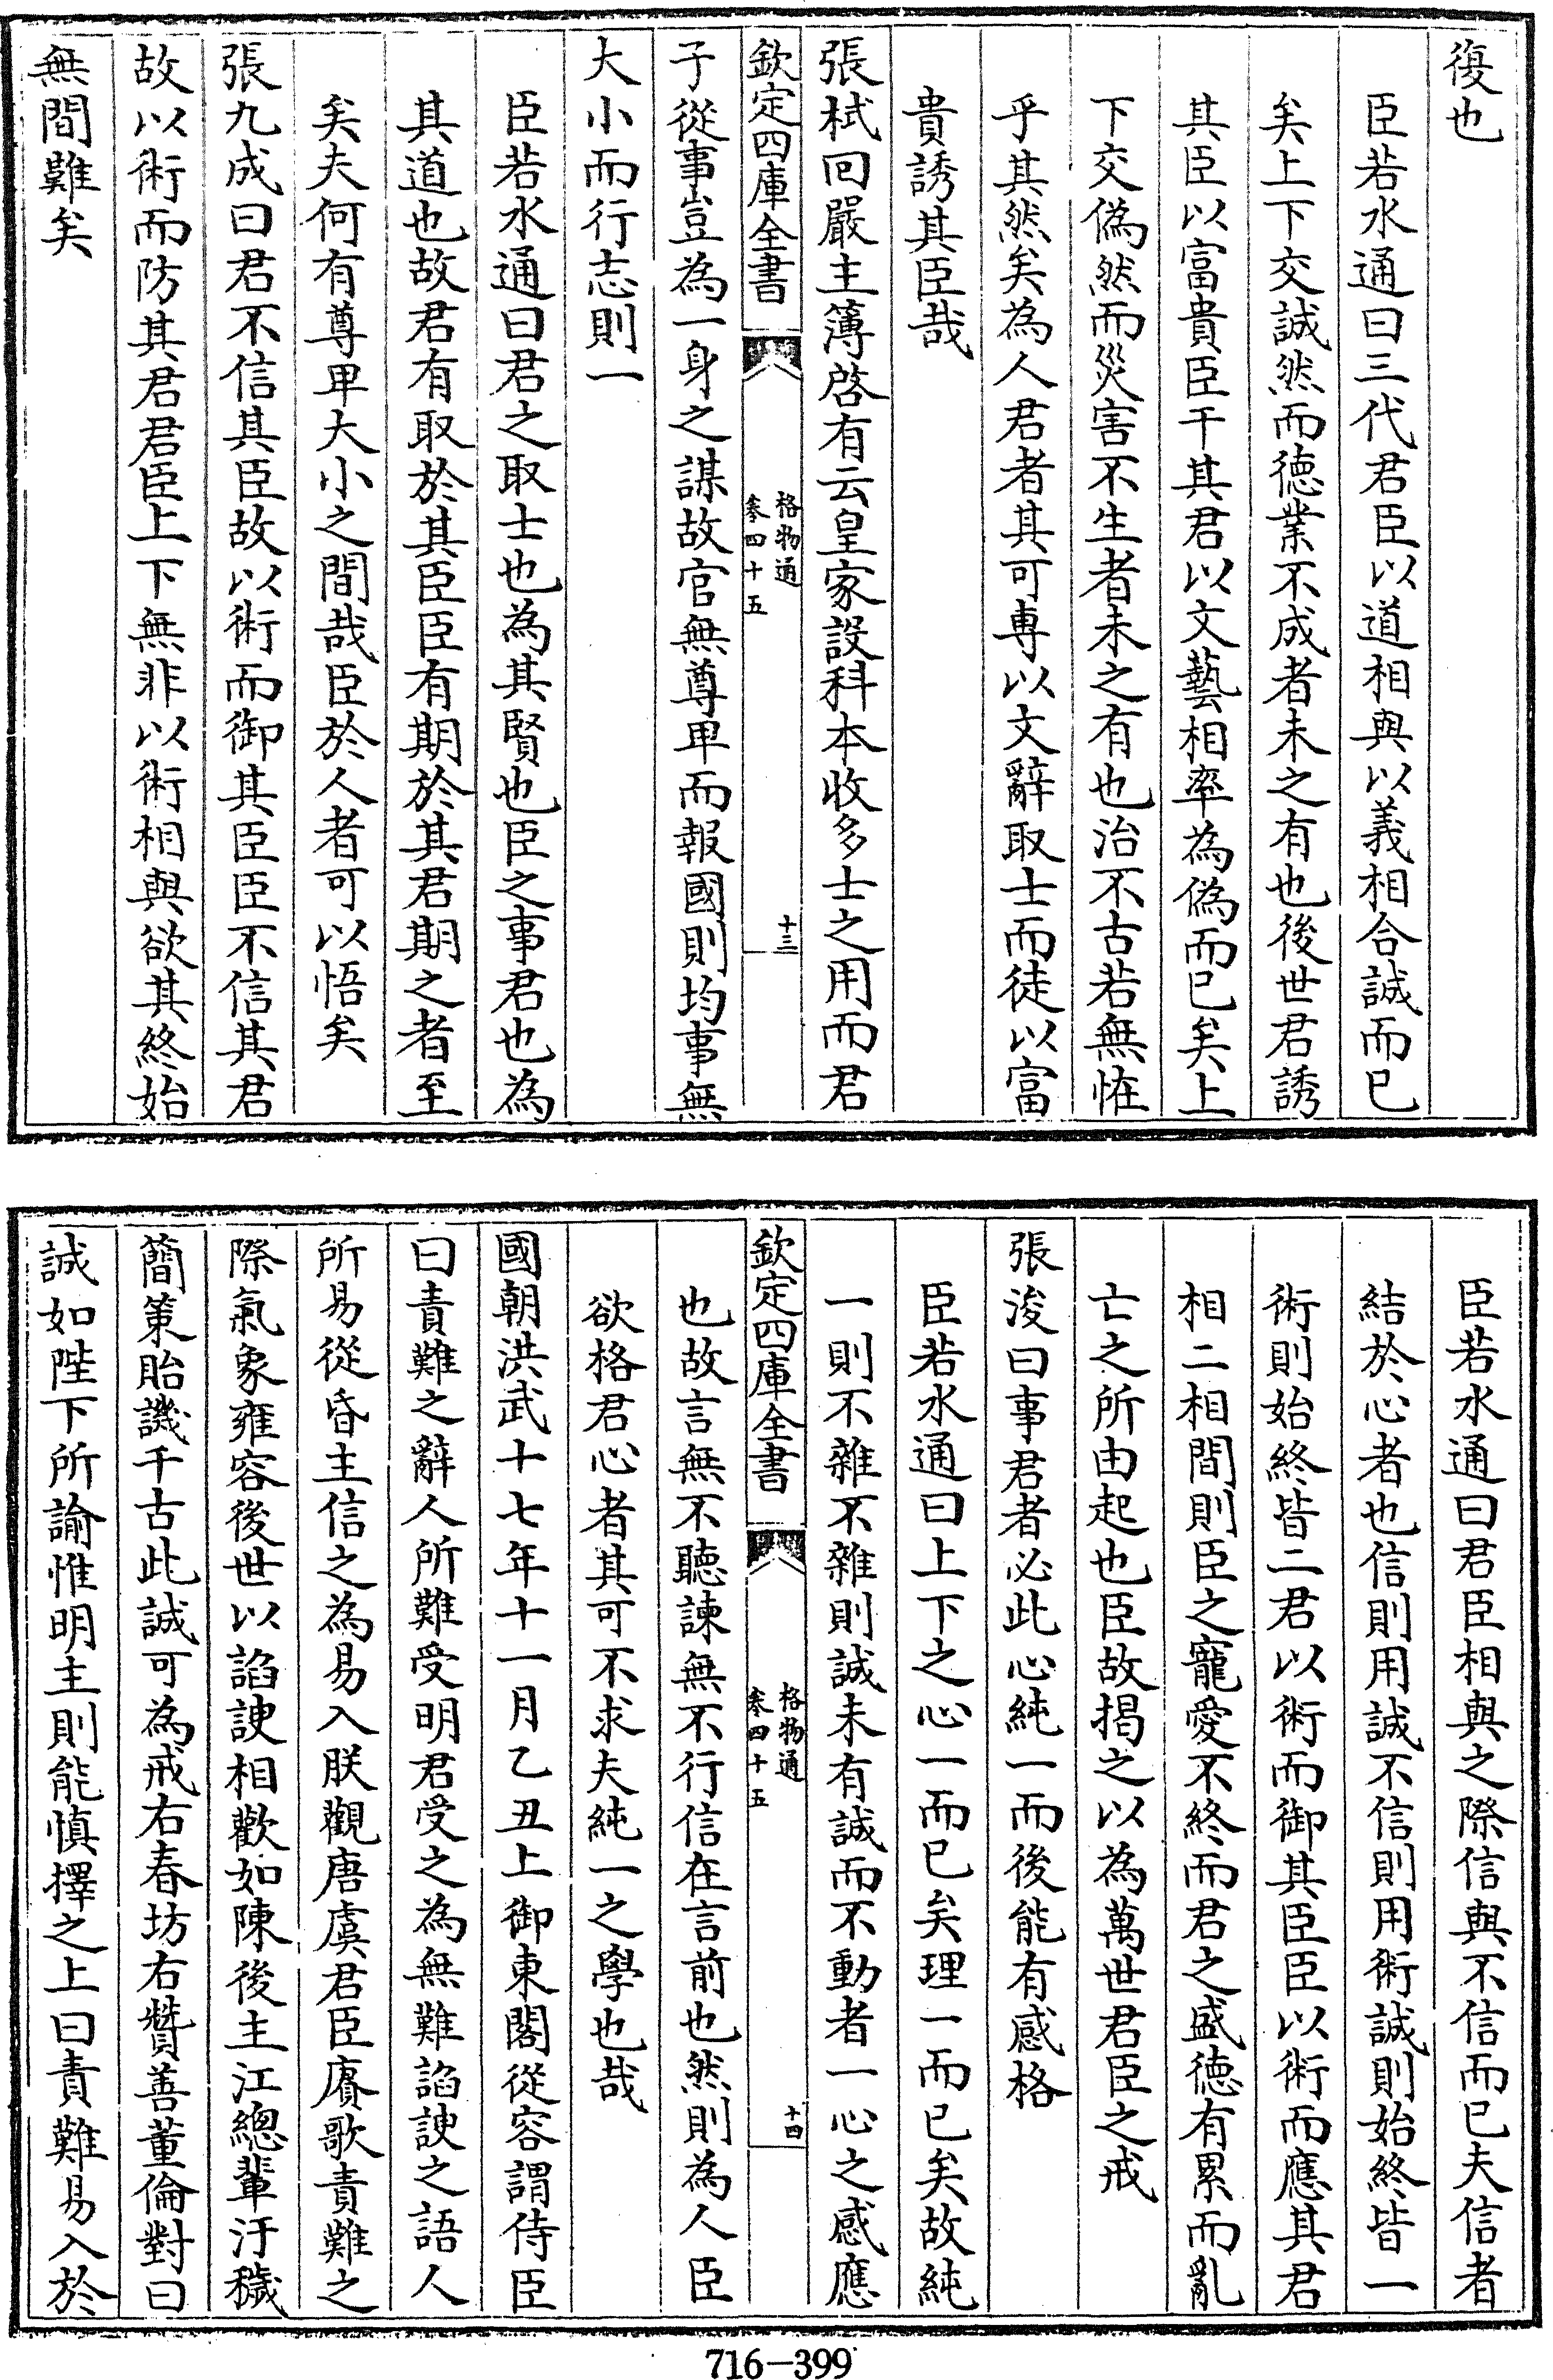 復也
臣若水通曰三代君臣以道相與以義相合誠而已
矣上下交誠然而德業不成者未之有也後世君誘
其臣以富貴臣干其君以文藝相率為偽而已矣上
下交偽然而災害不生者未之有也治不古若無恠
乎其然矣為人君者其可專以文辭取士而徒以富
貴誘其臣哉
張栻回嚴主簿啓有云皇家設科本收多士之用而君
欽定四庫全書
格物通
卷四十五
十三
子從事豈為一身之謀故官無尊卑而報國則均事無
大小而行志則一
臣若水通曰君之取士也為其賢也臣之事君也為
其道也故君有取於其臣臣有期於其君期之者至
矣夫何有尊卑大小之間哉臣於人者可以悟矣
張九成曰君不信其臣故以術而御其臣臣不信其君
故以術而防其君君臣上下無非以術相與欲其終始
無間難矣
臣若水通曰君臣相與之際信與不信而已夫信者
結於心者也信則用誠不信則用術誠則始終皆一
術則始終皆二君以術而御其臣臣以術而應其君
相二相間則臣之寵愛不終而君之盛德有累而亂
亡之所由起也臣故揭之以為萬世君臣之戒
張浚曰事君者必此心純一而後能有感格
臣若水通曰上下之心一而已矣理一而已矣故純
一則不雜不雜則誠未有誠而不動者一心之感應
欽定四庫全書
格物通
卷四十五
十四
也故言無不聽諫無不行信在言前也然則為人臣
欲格君心者其可不求夫純一之學也哉
國朝洪武十七年十一月乙丑上御東閣從容謂侍臣
曰責難之辭人所難受明君受之為無難諂諛之語人
所易從昏主信之為易入朕觀唐虞君臣賡歌責難之
際氣象雍容後世以諂諛相歡如陳後主江總輩汙穢
簡策貽譏千古此誠可為戒右春坊右贊善董倫對曰
誠如陛下所諭惟明主則能慎擇之上曰責難易入於
716-399